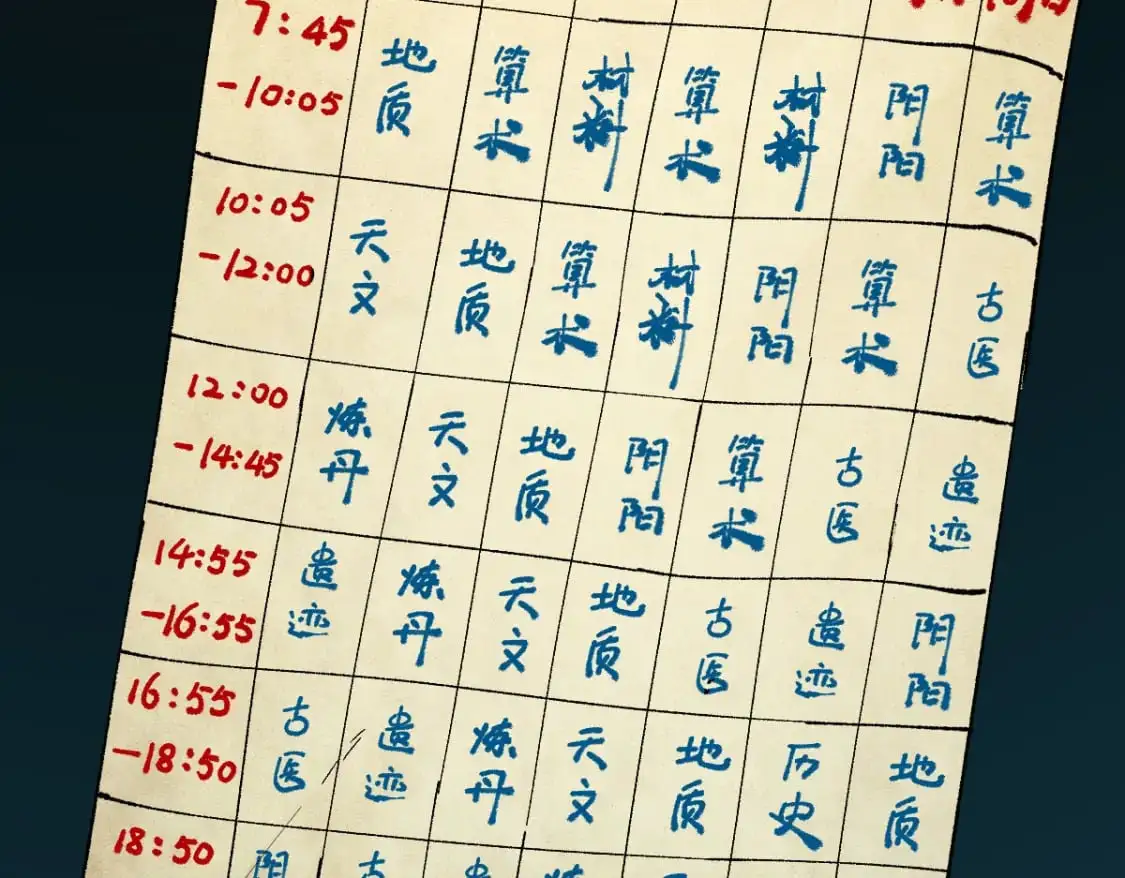 7:45 -10:05 地质 算术 材料 算术 材料 阴阳 算术
10:05 -12:00 天文 地质 算术 材料 阴阳 算术 古医
12:00 -14:45 炼丹 天文 地质 阴阳 算术 古医 遗迹
14:55 -16:55 遗迹 炼丹 天文 地质 古医 遗迹 阴阳
16:55 -18:50 古医 遗迹 炼丹 天文 地质 历史 地质
18:50 阴 古